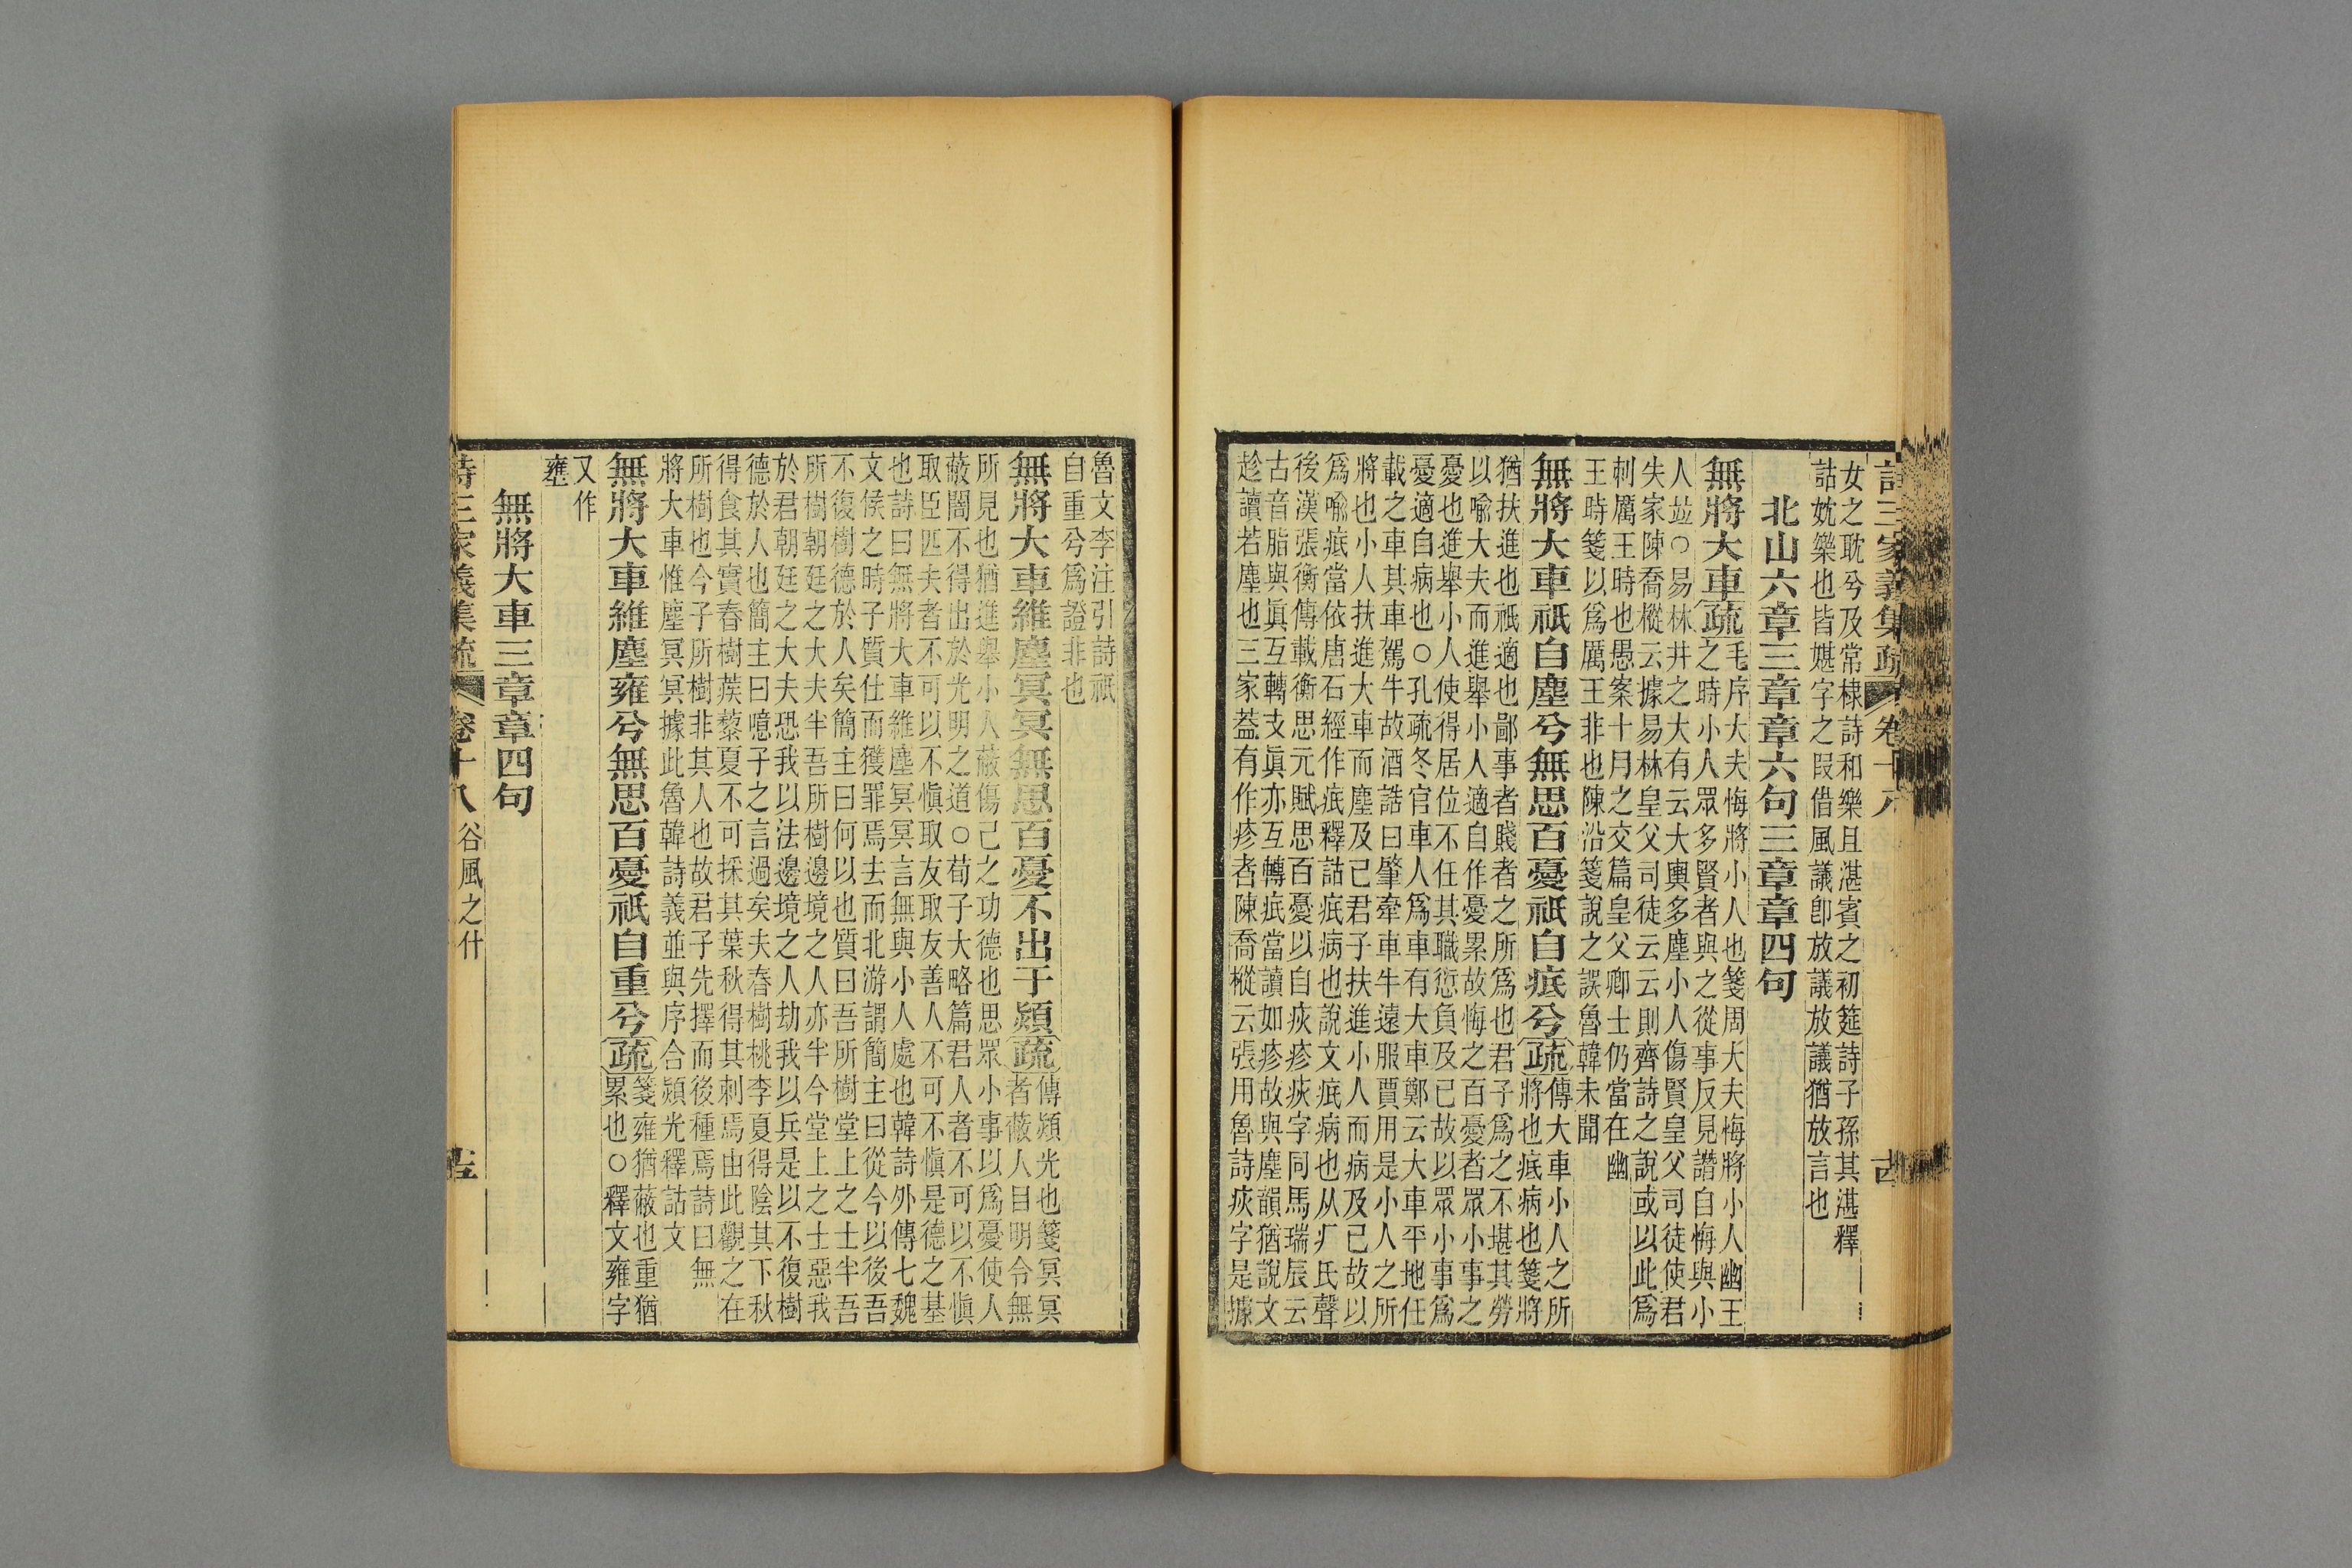 詩三家義集疏 卷十八
女之耽兮及常棣詩和樂且湛賓之初筵詩子孫其湛釋
詁妉樂也皆媅字之叚借風議卽放議放議猶放言也
北山六章三章章六句三章章四句
無將大車疏
毛序大夫悔將小人也箋周大夫悔將小人幽王
之時小人眾多賢者與之從事反見譖自悔與小
人竝○易林井之大有云大輿多塵小人傷賢皇父司徒使君
失家陳喬樅云據易林皇父司徒云云則齊詩之說或以此爲
刺厲王時也愚案十月之交篇皇父卿士仍當在幽
王時箋以爲厲王非也陳沿箋說之誤魯韓未聞
無將大車祇自塵兮無思百憂祇自疷兮疏
傳大車小人之所
將也疷病也箋將
猶扶進也祇適也鄙事者賤者之所爲也君子爲之不堪其勞
以喻大夫而進舉小人適自作憂累故悔之百憂者眾小事之
憂也進舉小人使得居位不任其職愆負及已故以眾小事爲
憂適自病也○孔疏冬官車人爲車有大車鄭云大車平地任
載之車其車駕牛故酒誥曰肇牽車牛遠服賈用是小人之所
將也小人扶進大車而塵及己君子扶進小人而病及己故以
爲喻疷當依唐石經作疷釋詁疷病也說文疷病也从疒氏聲
後漢張衡傳載衡思元賦思百憂以自疢疹疢字同馬瑞辰云
古音脂與眞互轉支眞亦互轉疷當讀如疹故與塵韻猶說文
趁讀若塵也三家葢有作疹者陳喬樅云張用魯詩疢字是據
魯文李注引詩祇
自重兮爲證非也
無將大車維塵冥冥無思百憂不出于熲疏
傳熲光也箋冥冥
者蔽人目明令無
所見也猶進舉小人蔽傷己之功德也思眾小事以爲憂使人
蔽闇不得出於光明之道○荀子大略篇君人者不可以不愼
取臣匹夫者不可以不愼取友取友善人不可不愼是德之基
也詩曰無將大車維塵冥冥言無與小人處也韓詩外傳七魏
文侯之時子質仕而獲罪焉去而北游謂簡主曰從今以後吾
不復樹德於人矣簡主曰何以也質曰吾所樹堂上之士半吾
所樹朝廷之大夫半吾所樹邊境之人亦半今堂上之士惡我
於君朝廷之大夫恐我以法邊境之人劫我以兵是以不復樹
德於人也簡主曰噫子之言過矣夫春樹桃李夏得陰其下秋
得食其實春樹蒺藜夏不可採其葉秋得其刺焉由此觀之在
所樹也今子所樹非其人也故君子先擇而後種焉詩曰無
將大車惟塵冥冥據此魯韓詩義並與序合熲光釋詁文
無將大車維塵雍兮無思百憂祇自重兮疏
箋雍猶蔽也重猶
累也○釋文雍字
又作
壅
無將大車三章章四句
詩三家義集疏 卷十八 谷風之什 十五